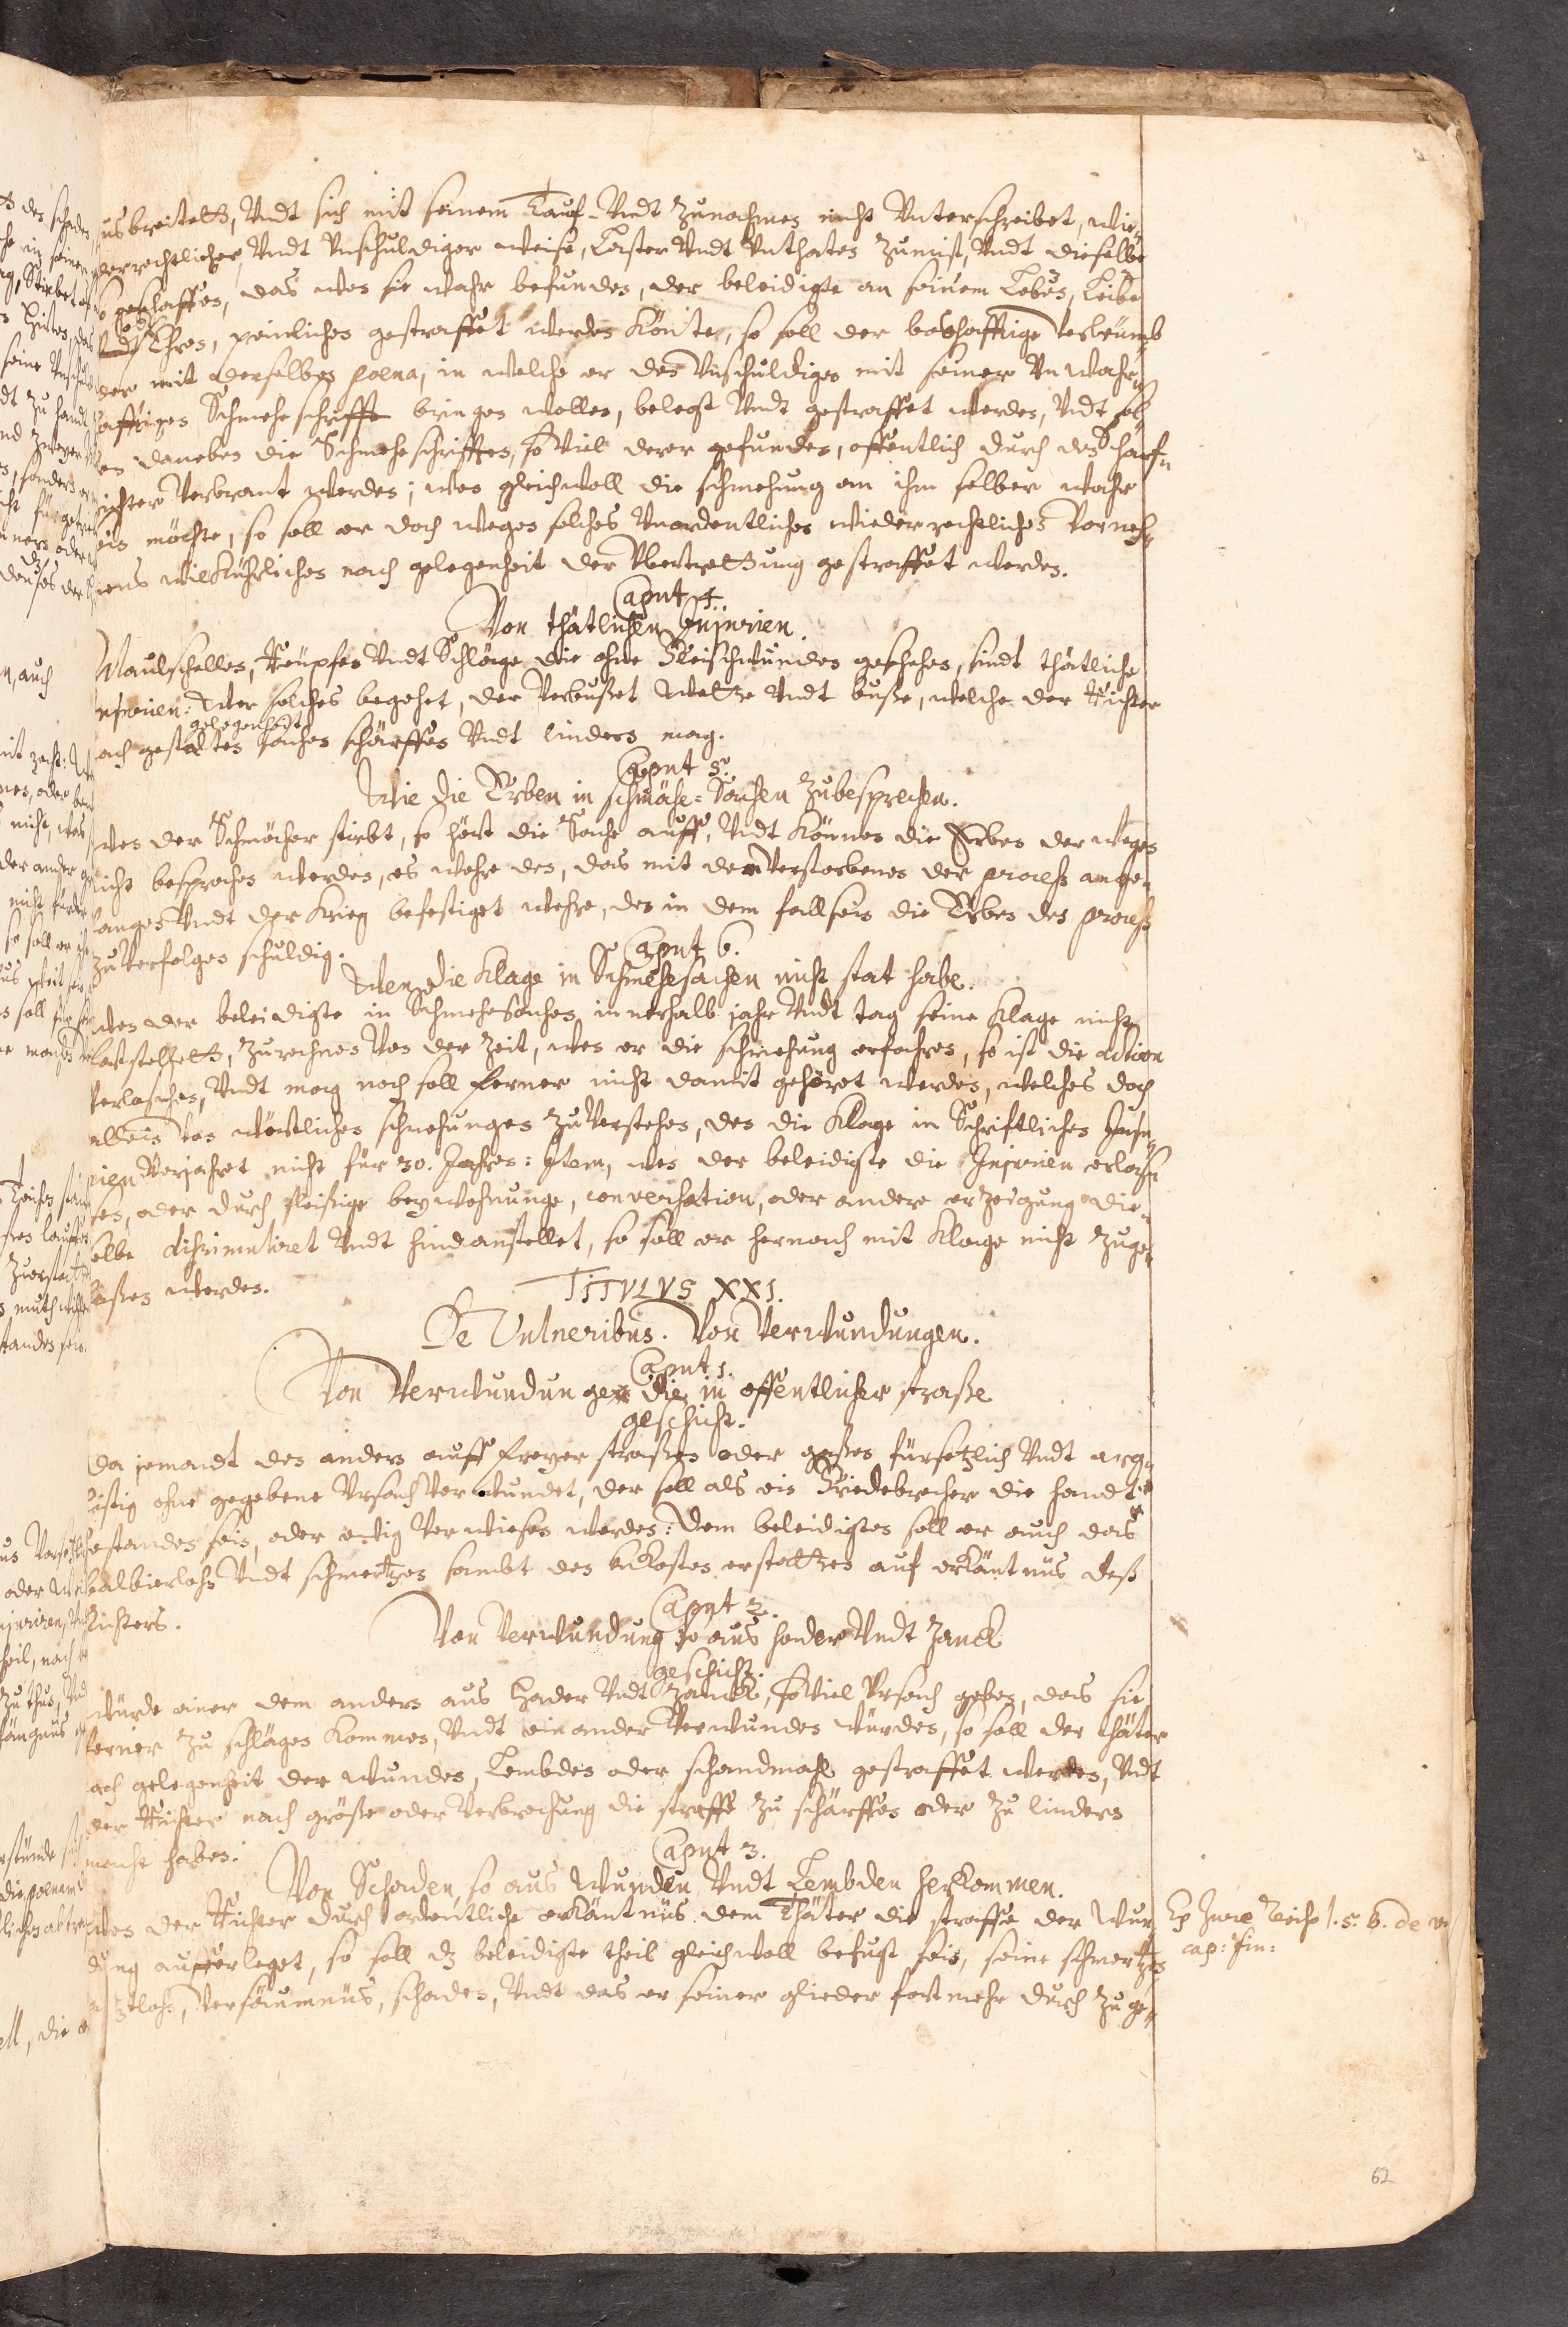 usbreitett, Undt sich mit seinem Tauf- Undt Zunahmen nicht Unterschreibet, wie-
derrechtlicher Undt Unschuldiger weise, Laster Undt Unthaten Zumist, Undt dieselbe
so geschaffen, das wen sie wahr befunden, der beleidigte an seinem Leben, Leibe
oder
Undt Ehren, peinlichen gestraffet werden Könte, so soll der boshafftige Verleumb
der mit derselben poena, in welche er den Unschuldigen mit seiner Unwahr-
hafftigen Schmeheschrifft bringen wollen, belegt Undt gestraffet werden, Undt sol-
len daneben die Schmeheschrifften, so Viel derer gefunden, offentlich durch den Scharf-
richter Verbrant werden; wen gleichwoll die schmehung an ihm selber wahr
sein möchte, so soll er doch wegen solches Unordentlichen wiederrechtlichen Vorneh-
mens willkührlichen nach gelegenheit der Ubertrettung gestraffet werden.
Caput 4.
Von thätlichen Injurien.
Maulschellen, Reupfen Undt Schläge die ohne Fleischwunden geschehen, sindt thätliche
njurien: Wer solches begehet, der Verbußet Wette Undt buße, welche der Richter
gelegenheit
ach gestalten sachen schärffen Undt lindern mag.
Caput 5.
Wie die Erben in schmähe-Sachen Zubesprechen.
Wen der Schmächer stirbt, so hört die Sache auff, Undt Können die Erben derwegen
nicht besprochen werden, es wehre den, das mit dem Verstorbenen der process ange-
fangen Undt der Krieg befestiget wehre, den in dem fall sein die Erben den process
zu Verfolgen schuldig.
Caput 6.
Wen die Klage in Schmehesachen nicht stat habe.
Wen der beleidigte in Schmehesachen innerhalb jahr Undt tag seine Klage nicht
fortstellett, Zurechnen Von der Zeit, wen er die schmehung erfahren, so ist die action
Verloschen, Undt mag noch soll ferner nicht damit gehöret werden, welches doch
allein Von wörtlichen schmehungen Zu Verstehen, den die Klage in Schriftlichen Inju-
rien Verjahret nicht für 30. Jahren: Item, wen der beleidigte die Injurien erlaß-
sen, oder durch fleißige beywohnunge, conversation, oder andere erzeigung die-
selbe dissimuliret Undt hindanstellet, so soll er hernach mit Klage nicht Zuge-
laßen werden.
TITVLVS XXI.
De Vulneribus. Von Verwundungen.
Caput 1.
Von Verwundungen die in offentlicher straße
geschicht.
Da jemandt den andern auff freyer straßen oder gaßen fürsetzlich Undt arg-
listig ohne gegebene Ursach Verwundet, der soll als ein Friedebrecher die handt
estanden sein, oder ewig Verwiesen werden: Dem beleidigten soll er auch das
balbierlohn Undt schmertzen sambt den Unkosten erstatten auf erkäntnüs deß
Richters.
Caput 2.
Von Verwundung so aus hader Undt Zanck
geschicht.
Würde einer dem andern aus Hader Undt Zanck, so Viel Ursach geben, das sie
ferner Zu schlägen Kommen, Undt einander Verwunden würden, so soll der thäter
nach gelegenheit der wunden, Lembden oder schandmahl gestraffet werden, Undt
der Richter nach größe oder Verbrechung die straffe Zu schärffen oder Zu lindern
macht haben.
Caput 3.
Von Schaden, so aus Wunden Undt Lembden herkommen.
Wen der Richter durch ordentliche erkäntnüs dem Thäter die straffe der Wun-
dung aufferleget, so soll dz beleidigte theil gleichwoll befugt sein, seine schmertzen
tzlohn, Versäumnüs, schaden, Undt das er seiner glieder fort mehr durch Zuge-
Ex Jure l. 5. 6. de
cap: fin:
62